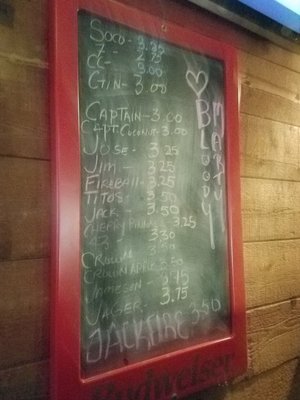 SOCO - 3.25
7 - 2.75
CC - 3.00
GIN - 3.00
CAPTAIN - 3.00
CAPT. COCONUT - 3.00
JOSE - 3.25
JIM - 3.25
FIREBALL - 3.25
TITOS - 3.50
JACK - 3.50
CHERRY 3.25
43 3.50
CROWN
CROWN APPLE 3.50
JAMESON - 3.75
JAGER - 3.75
JACKFIRE 3.50
BLOODY
MARY
Budweiser